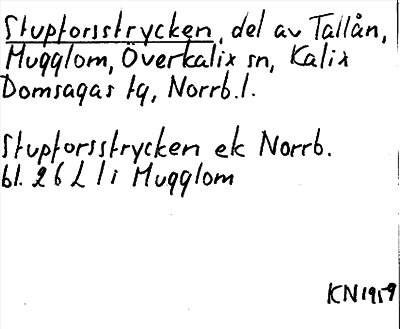 Stupforsstrycken, del av Tallån,
Mugglom, Överkalix sn, Kalix
Domsagas tg, Norrb. l.
Stupforsstrycken ek Norrb.
bl. 26 L l i Mugglom
KN 1959